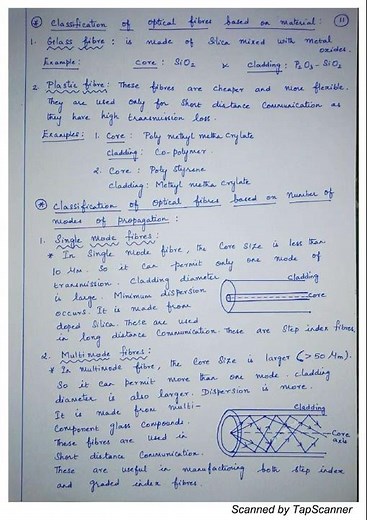 * Classification of Optical fibres based on material: 11
1. Glass fibre: is made of Silica mixed with metal
oxides.
Example: Core: SiO2 & Cladding: P2O3-SiO2
2. Plastic fibre: These fibres are cheaper and more flexible.
They are used only for Short distance Communication as
they have high transmission loss.
Examples: 1. Core: Poly methyl metha crylate
Cladding: Co-polymer.
2. Core: Poly styrene
Cladding: Methyl metha crylate
* Classification of Optical fibres based on Number of
modes of Propagation:
1. Single mode fibres:
* In Single mode fibre, the Core size is less than
10 μm. So it can permit only one mode of
transmission. Cladding diameter
is large. Minimum dispersion
occurs. It is made from
doped Silica. These are used
in long distance Communication. These are Step index fibres
Cladding
core
2. Multimode fibres:
* In multimode fibre, the Core size is larger (>50 μm).
So it can permit more than one mode. cladding
diameter is also larger. Dispersion is more.
It is made from multi-
Component glass Compounds.
These fibres are used in
Short distance Communication.
Cladding
Core
axis
These are useful in manufactioning both step index
and graded index fibres.
Scanned by TapScanner